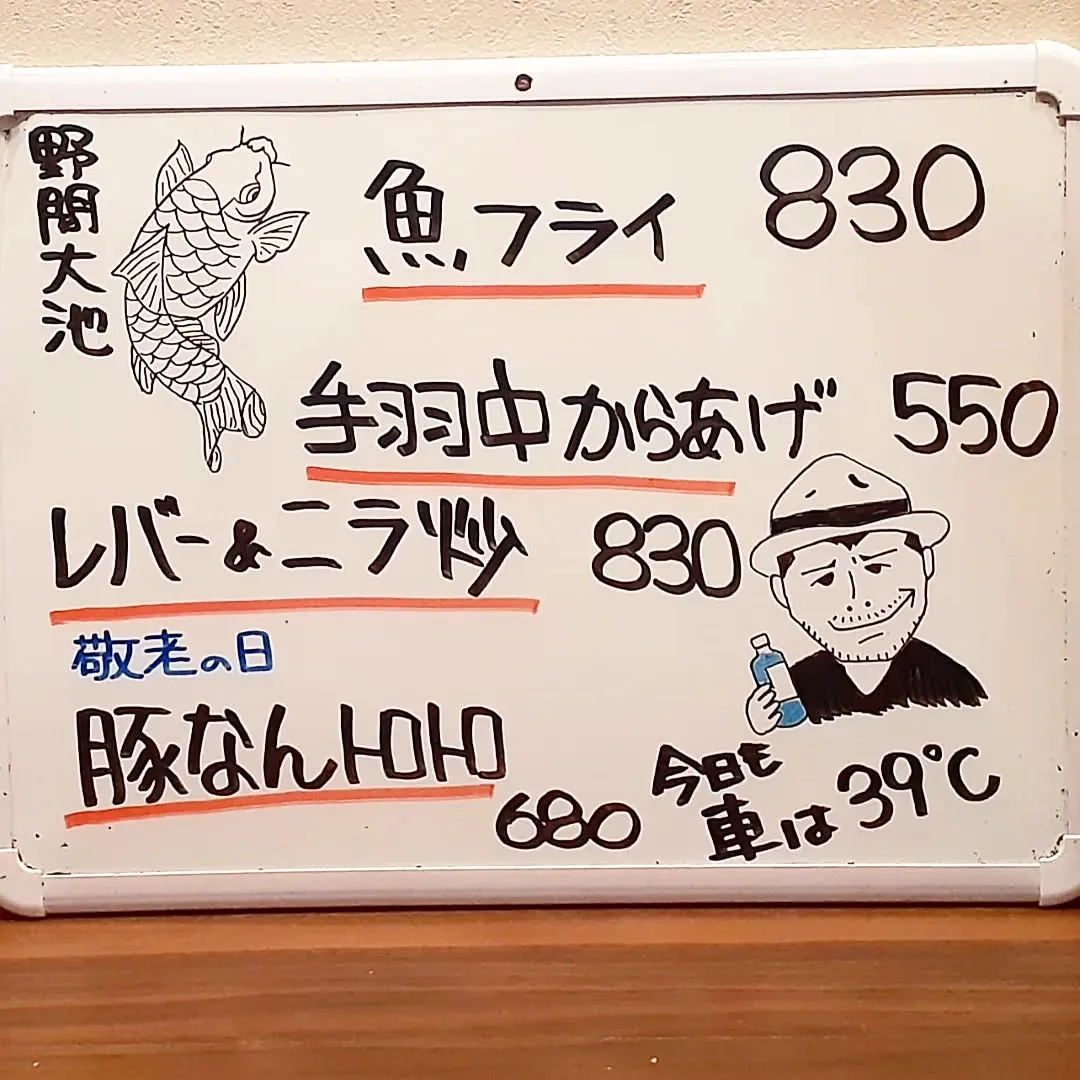 野間大池
魚フライ 830
手羽中からあげ 550
レバー&ニラ炒 830
敬老の日
豚なんトロトロ
680
今日も
車は39℃